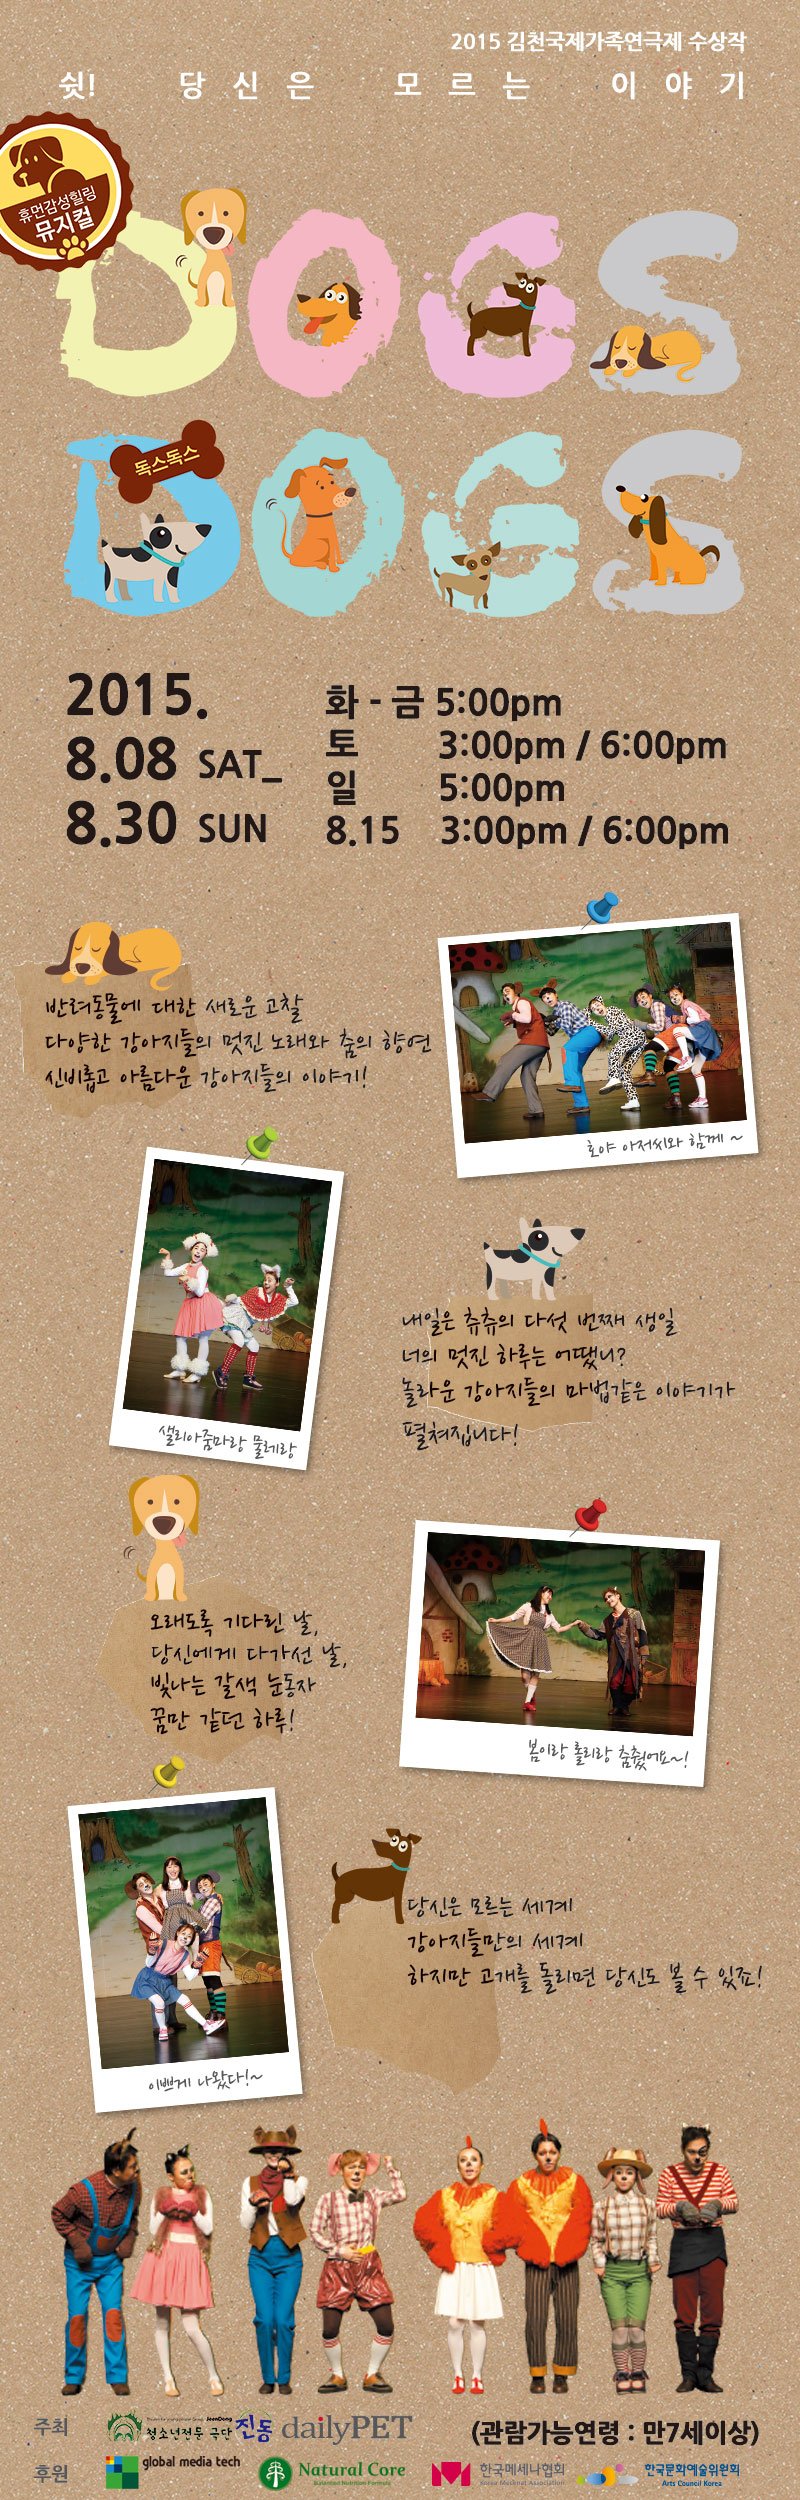 2015 김천국제가족연극제 수상작
쉿! 당신은 모르는 이야기
휴먼감성힐링
뮤지컬
DOGS
독스독스
DOGS
2015.
8.08 SAT_
8.30 SUN
화 - 금 5:00pm
토 3:00pm / 6:00pm
일 5:00pm
8.15 3:00pm / 6:00pm
반려동물에 대한 새로운 고찰
다양한 강아지들의 멋진 노래와 춤의 향연
신비롭고 아름다운 강아지들의 이야기!
호야 아저씨와 함께 ~
샐리아줌마랑 물레랑
내일은 츄츄의 다섯 번째 생일
너의 멋진 하루는 어땠니?
놀라운 강아지들의 마법같은 이야기가
펼쳐집니다!
오래도록 기다린 날,
당신에게 다가선 날,
빛나는 갈색 눈동자
꿈만 같던 하루!
봄이랑 롤리랑 춤췄어요~!
당신은 모르는 세계
강아지들만의 세계
하지만 고개를 돌리면 당신도 볼 수 있죠!
이쁘게 나왔다!~
주최
청소년전문 극단 진동
dailyPET
(관람가능연령 : 만7세이상)
후원
global media tech
Natural Core
Balanced Nutrition Formula
한국메세나협회
Korea Mecenat Association
한국문화예술위원회
Arts Council Korea